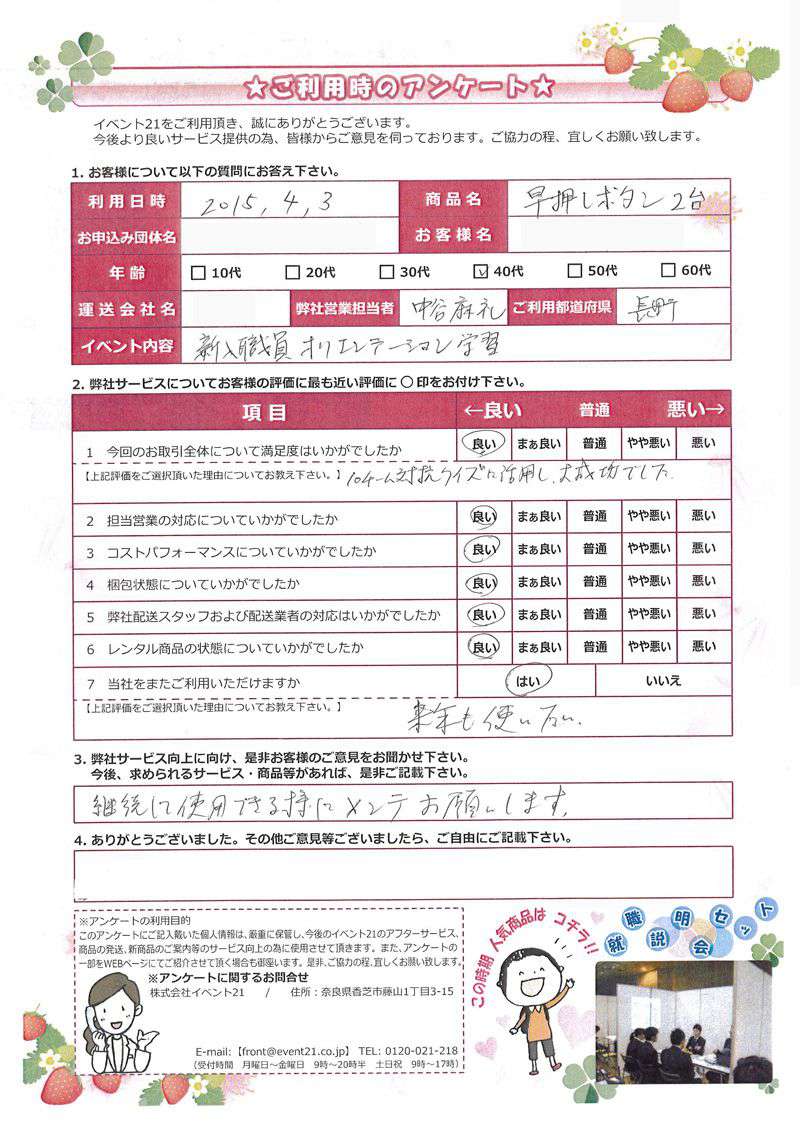 ★ご利用時のアンケート★
イベント21をご利用頂き、誠にありがとうございます。
今後より良いサービス提供の為、皆様からご意見を伺っております。ご協力の程、宜しくお願い致します。
1. お客様について以下の質問にお答え下さい。
利用日時 2015, 4, 3 商品名 早押しボタン 2台
お申込み団体名 お客様名
年齢 10代 20代 30代 ✓40代 50代 60代
運送会社名 弊社営業担当者 中谷麻礼 ご利用都道府県 長野
イベント内容 新入職員 オリエンテーション学習
2. 弊社サービスについてお客様の評価に最も近い評価に ○ 印をお付け下さい。
項目 ←良い 普通 悪い→
1 今回のお取引全体について満足度はいかがでしたか 良い まぁ良い 普通 やや悪い 悪い
【上記評価をご選択頂いた理由についてお教え下さい。】 10チーム対抗クイズに活用し、大成功でした.
2 担当営業の対応についていかがでしたか 良い まぁ良い 普通 やや悪い 悪い
3 コストパフォーマンスについていかがでしたか 良い まぁ良い 普通 やや悪い 悪い
4 梱包状態についていかがでしたか 良い まぁ良い 普通 やや悪い 悪い
5 弊社配送スタッフおよび配送業者の対応はいかがでしたか 良い まぁ良い 普通 やや悪い 悪い
6 レンタル商品の状態についていかがでしたか 良い まぁ良い 普通 やや悪い 悪い
7 当社をまたご利用いただけますか はい いいえ
【上記評価をご選択頂いた理由についてお教え下さい。】 来年も使いたい.
3. 弊社サービス向上に向け、是非お客様のご意見をお聞かせ下さい。
今後、求められるサービス・商品等があれば、是非ご記載下さい。
継続して使用できる様にメンテお願いします.
4. ありがとうございました。その他ご意見等ございましたら、ご自由にご記載下さい。
※アンケートの利用目的
このアンケートにご記入戴いた個人情報は、厳重に保管し、今後のイベント21のアフターサービス、
商品の発送、新商品のご案内等のサービス向上の為に使用させて頂きます。また、アンケートの
一部をWEBページにてご紹介させて頂く場合も御座います。是非、ご協力の程、宜しくお願い致します。
※アンケートに関するお問合せ
株式会社イベント21 / 住所:奈良県香芝市藤山1丁目3-15
E-mail:【front@event21.co.jp】 TEL: 0120-021-218
(受付時間 月曜日～金曜日 9時～20時半 土日祝 9時～17時)
この時期 人気商品は コチラ!!
就職説明会セット